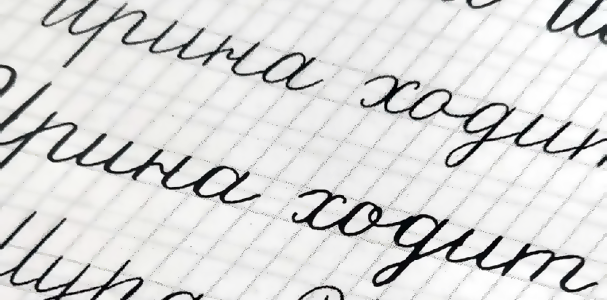 Ирина ходит
Ирина ходит